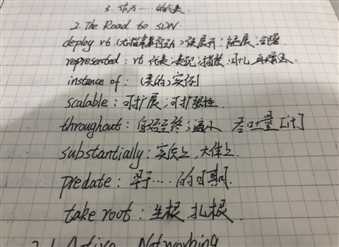 2. The Road to SDN
deploy vt
represented: vt 代表;表现;描放
instance of: (类的)实例
scalable: 可扩展;可扩展性
throughout: 自始至终;遍及 吞吐量[计]
substantially: 实质上,大体上
predate: 早于……的日期
take root: 生根,扎根
2.1 Active Networking